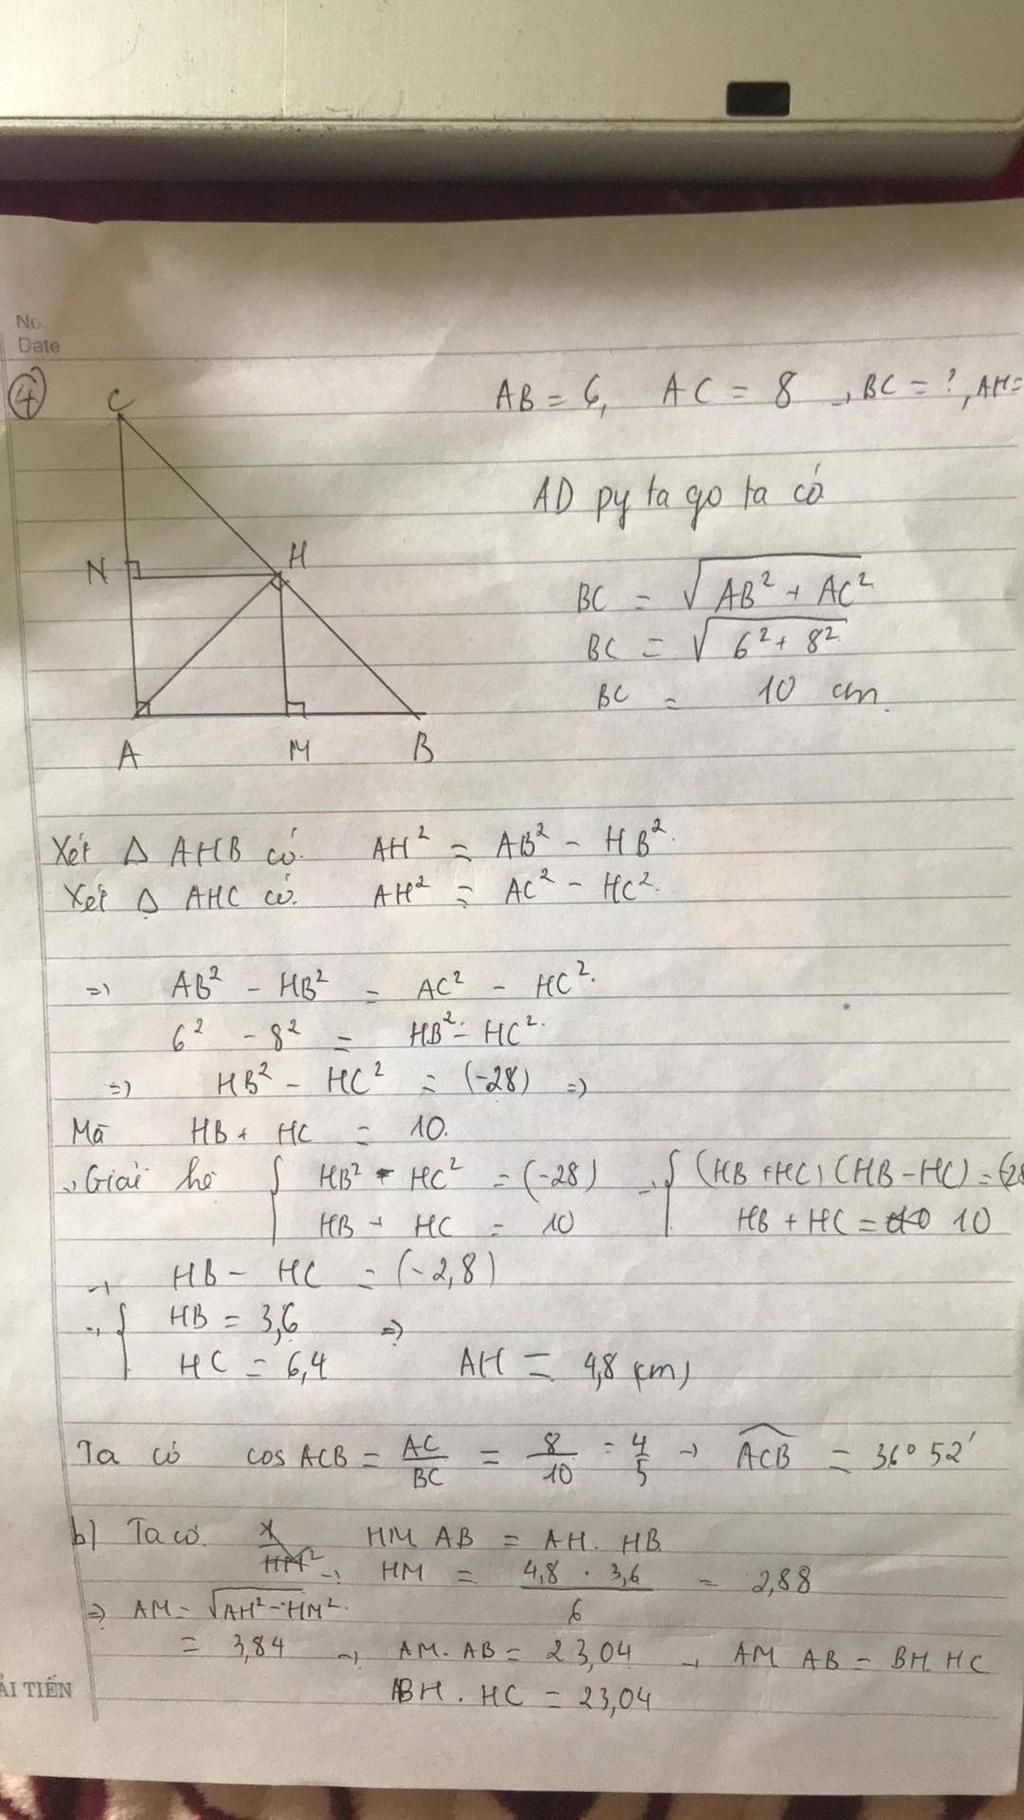 No.
Date
④
AB = 6, AC = 8 → BC = ?, AH =
C
N
H
A
M
B
AD pytago ta có
BC = √AB² + AC²
BC = √6² + 8²
BC = 10 cm.
Xét Δ AHB có. AH² = AB² - HB².
Xét Δ AHC có. AH² = AC² - HC².
=> AB² - HB² = AC² - HC².
6² - 8² = HB² - HC².
=> HB² - HC² = (-28) =>
Mà HB + HC = 10.
→ Giải hệ { HB² - HC² = (-28) → { (HB + HC) (HB - HC) = (-28
HB + HC = 10 HB + HC = 10
→ HB - HC = (-2,8)
→ { HB = 3,6 =>
HC = 6,4 AH = 4,8 (cm)
Ta có cos ACB = AC/BC = 8/10 = 4/5 → ACB = 36° 52'
b) Ta có. HM AB = AH. HB
→ HM = 4,8 . 3,6 / 6 = 2,88
=> AM = √AH² - HM².
= 3,84 → AM. AB = 23,04 → AM AB = BH. HC
BH . HC = 23,04
ẢI TIẾN